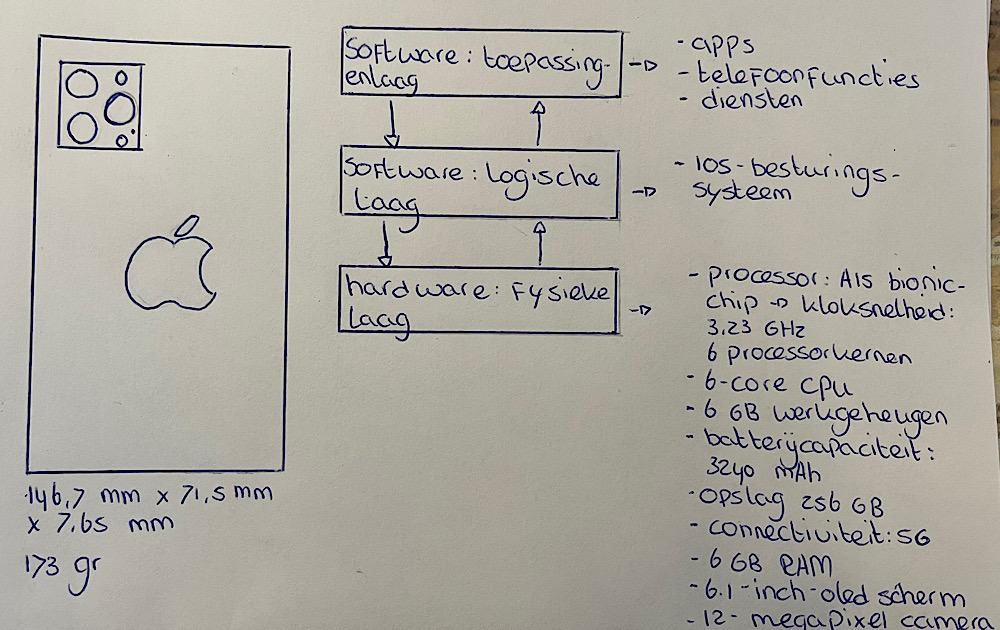 Software: toepassing-
enlaag
- apps
- telefoonfuncties
- diensten
Software: Logische
Laag
- IOS-besturings-
systeem
hardware: Fysieke
laag
- processor: A15 bionic-
chip → kloksnelheid:
3.23 GHz
6 processorkernen
- 6-core cpu
- 6 GB werkgeheugen
- batterijcapaciteit:
3240 mAh
- opslag 256 GB
- connectiviteit: 5G
- 6 GB RAM
- 6.1-inch-oled scherm
- 12-megapixel camera
146,7 mm x 71,5 mm
x 7.65 mm
173 gr